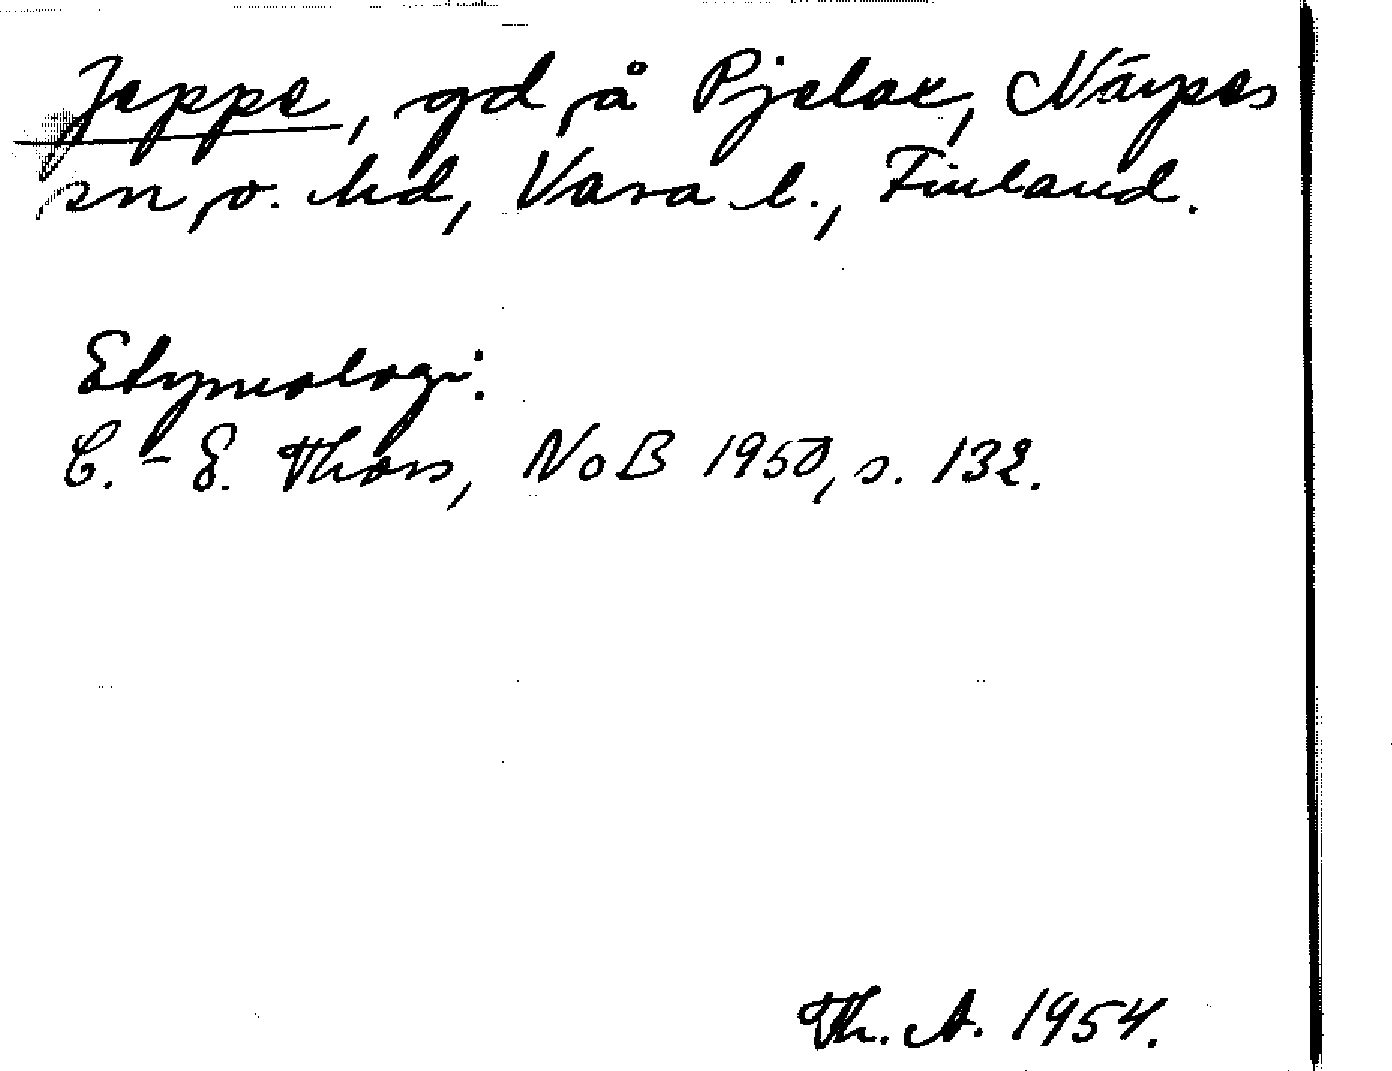 Jeppe, gd å Pjelax, Närpes
sn o. hd, Vasa l., Finland.
Etymologi:
C.-E. Thors, NoB 1950, s. 132.
Th. A. 1954.